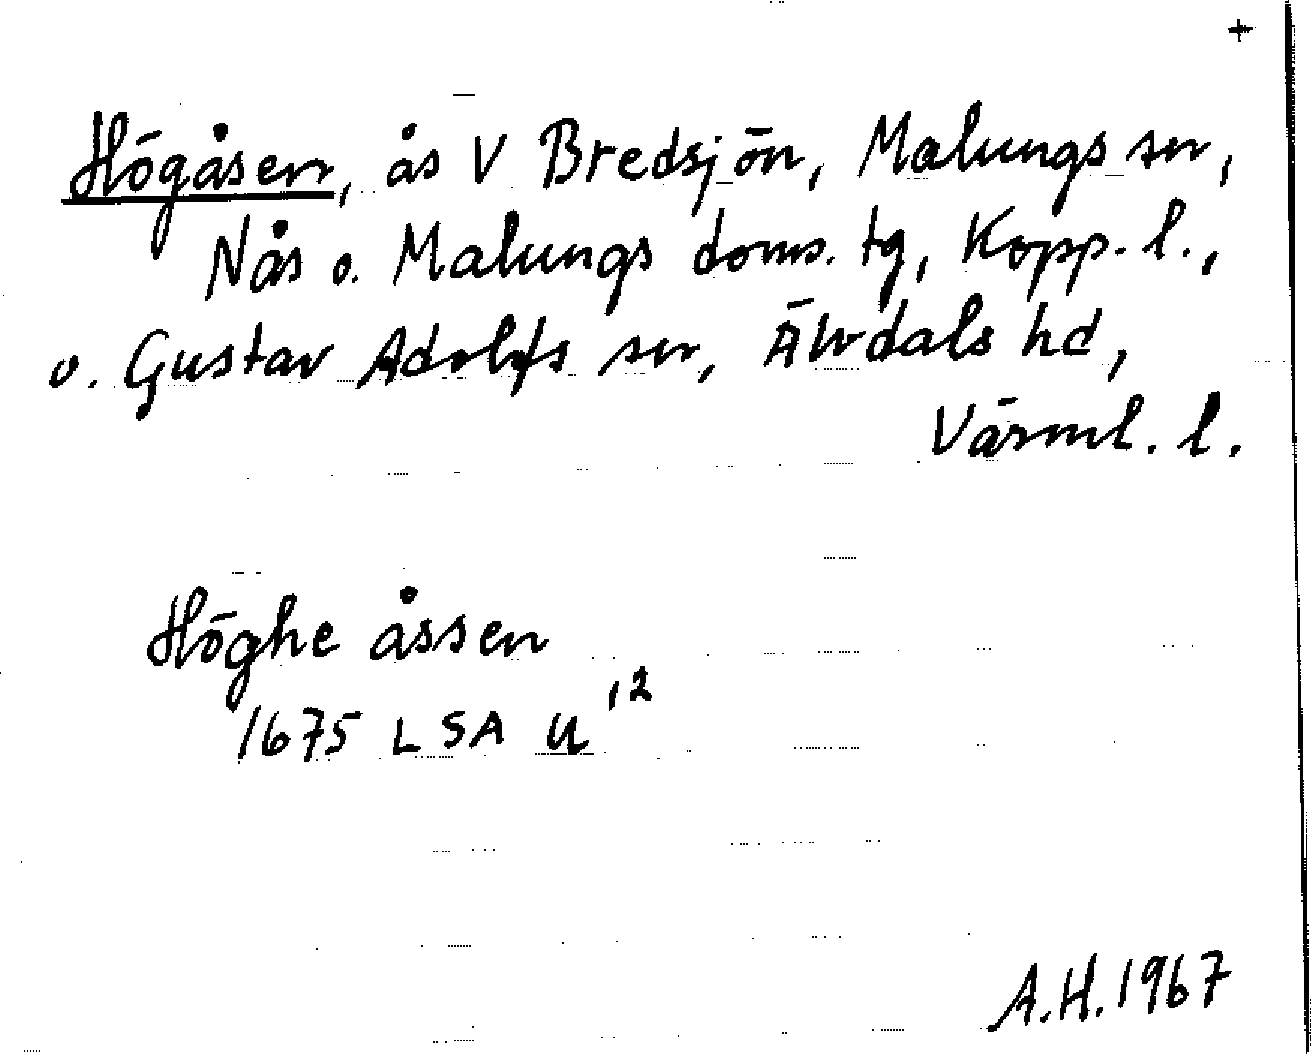 +
Högåsen, ås V Bredsjön, Malungs sn,
Nås o. Malungs doms. tg, Kopp. l.,
o. Gustav Adolfs sn, Älvdals hd,
Värml. l.
Höghe åssen
1675 LSA U ¹,²
A.H. 1967